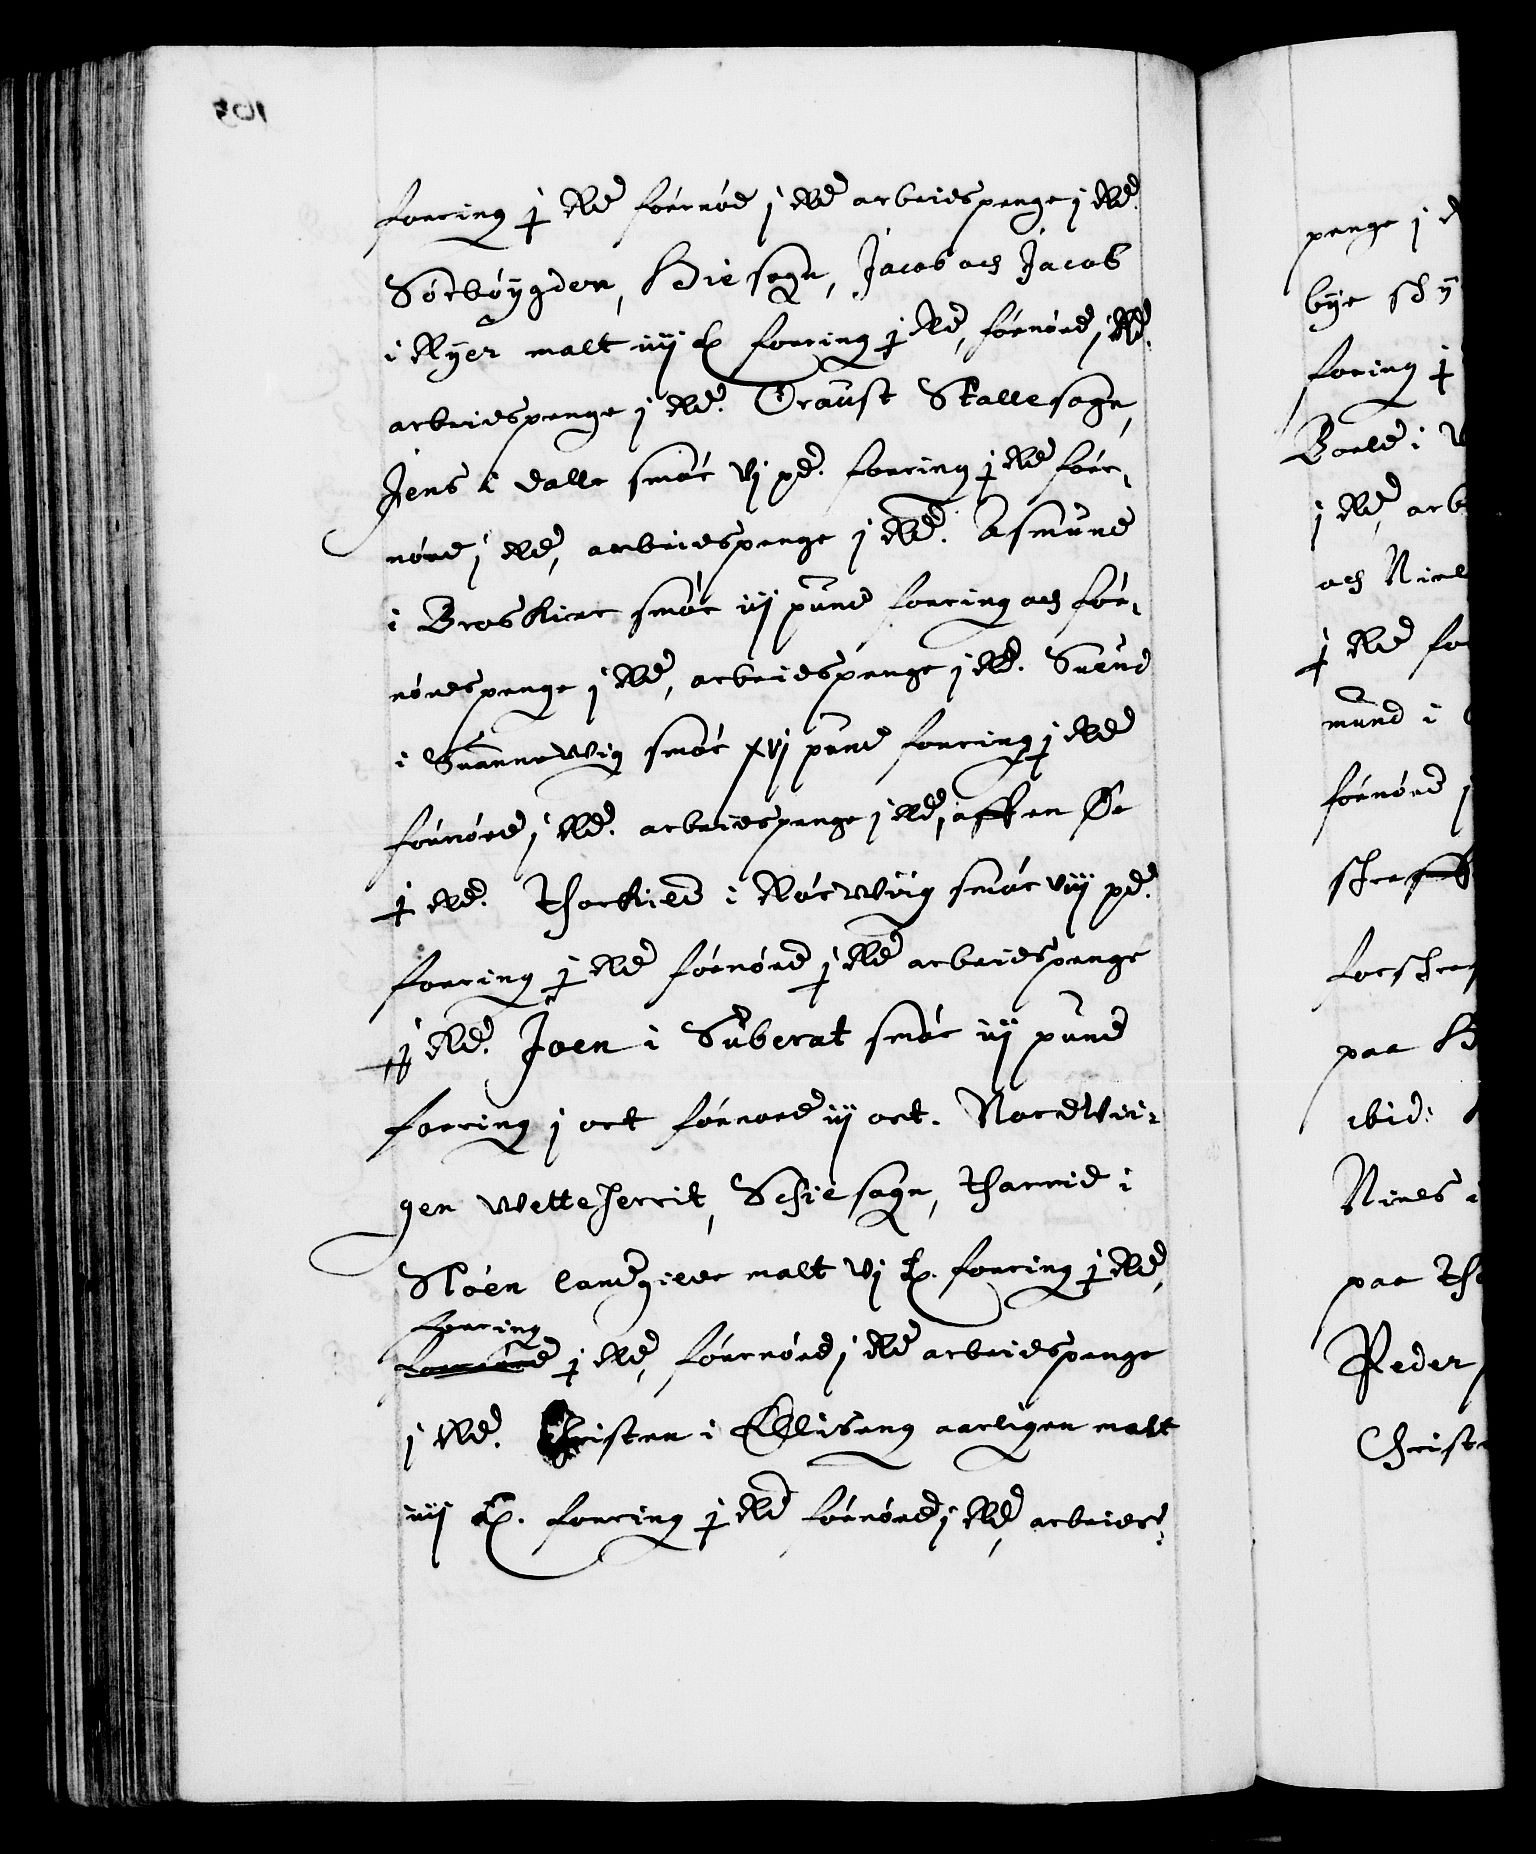 foering ɉ Rdr foernød j Rdr arbeidspenge j Rdr.
Sørbøÿgden, Hie sogn, Jacob och Jacob
i Rÿer malt iiij foering ɉ Rdr, fornød j Rdr.
arbeidspenge j Rdr. Traust Stalle sogn,
Jens i Dalle smør vj pd. foering ɉ Rdr foer-
nød j Rdr, arbeidspenge j Rdr. Asmund
i Broskier smør iij pund foering och foer-
nødspenge j Rdr, arbeidspenge j Rdr. Suend
i Suannewig smør xvj pund foering ɉ Rdr
fornød j Rdr. arbeidspenge j Rdr, aff en Øe
ɉ Rdr. Thorkild i Rørwiig smør viij pd.
foering ɉ Rdr fornød ɉ Rdr arbeidspenge
Rdr. Joen i Suberat smør iij pund
foering j ort fornød iij ort. Nordwii-
gen Wetteherrit, Schie sogn, Tharrid i
Sloen landgilde malt vj foering ɉ Rdr,
foering
ɉ Rdr, foernød j Rdr arbeidspenge
j Rdr. Christen i Elliseng aarligen malt
iiij foering ɉ Rdr fornød j Rdr, arbeids-
penge j
bÿe
foring ɉ
j Rdr, arb
och Niel
ɉ Rdr fo
mund i
fornød j
paa H
ibid:
Niels i
paa Th
Peder
Christe